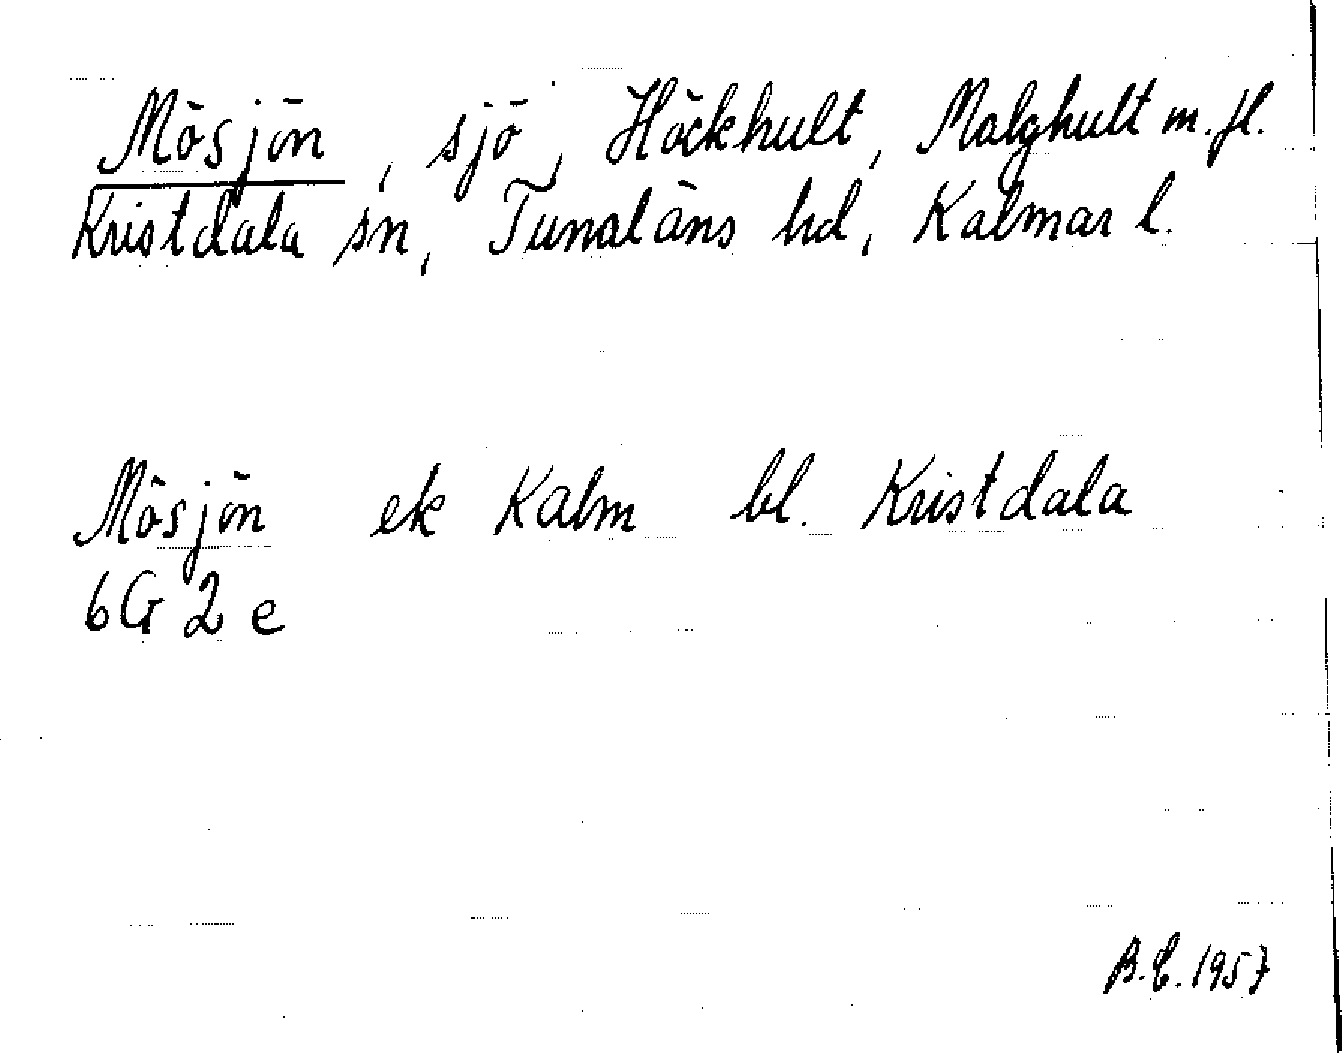 Mösjön, sjö, Höckhult, Malghult m.fl.
Kristdala sn, Tunaläns hd, Kalmar l.
Mösjön ek Kalm bl. Kristdala
6G 2 e
B.E. 1957